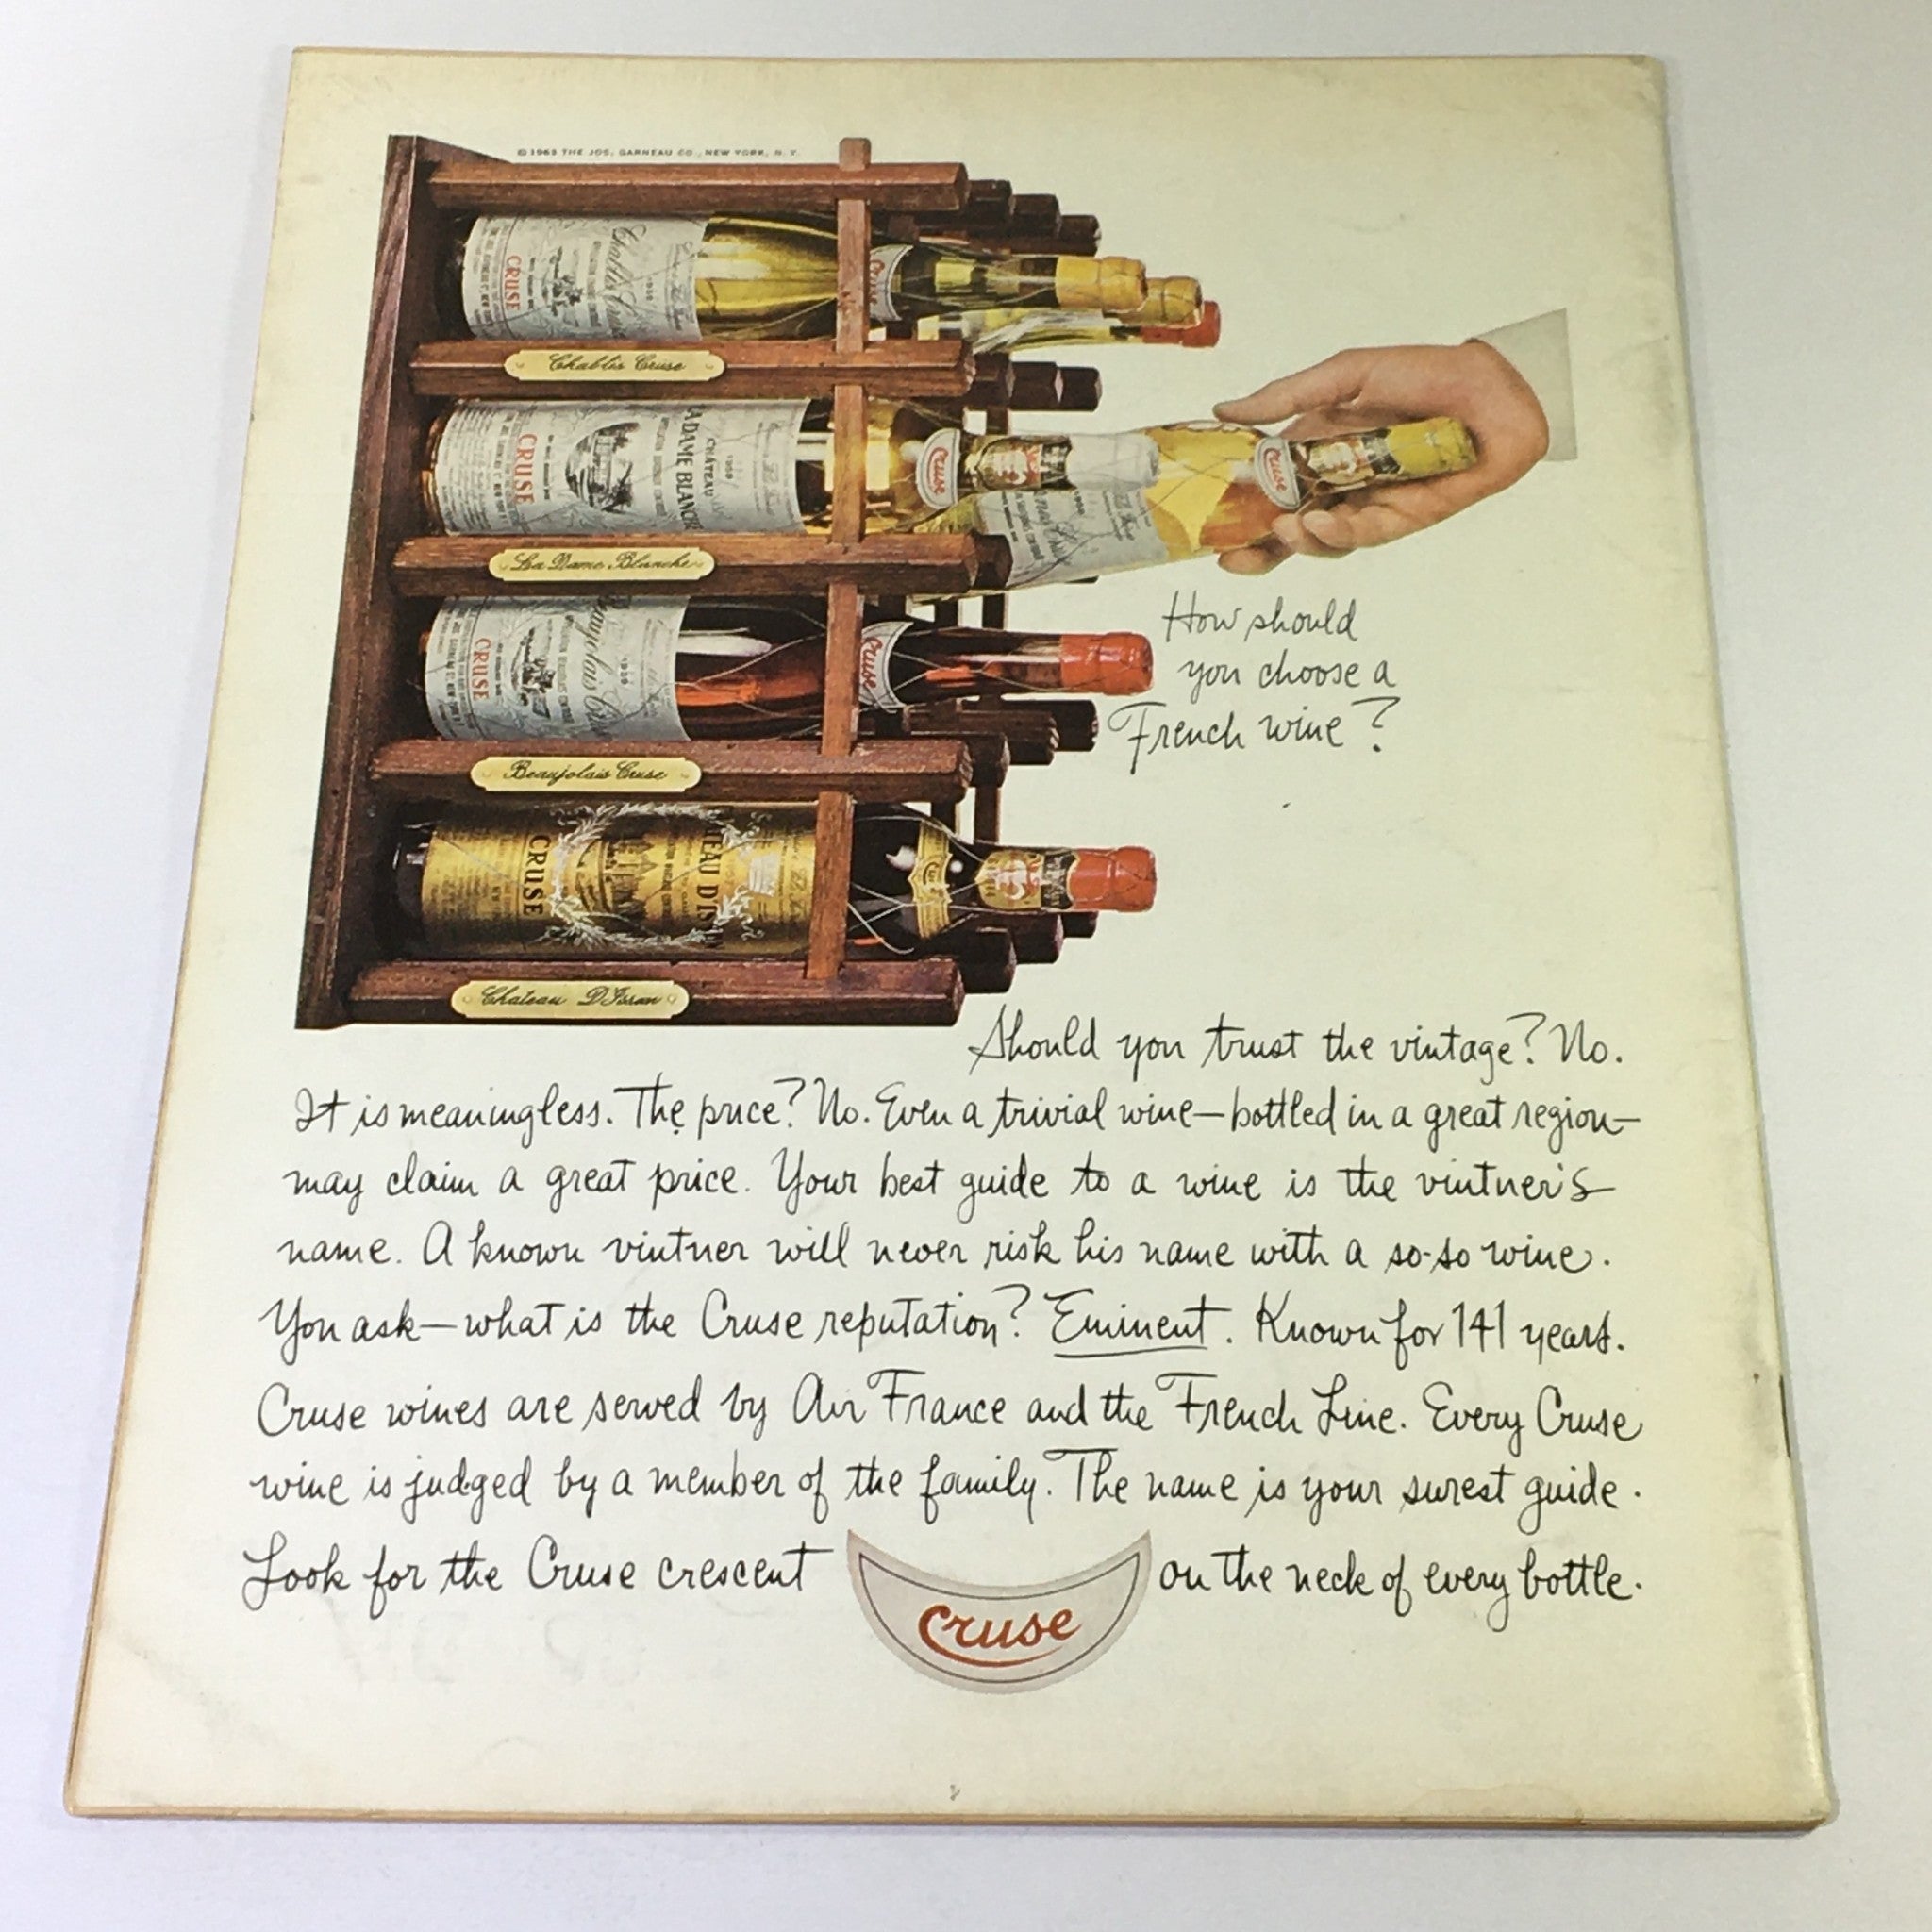 © 1963 THE JOS. GARNEAU CO., NEW YORK, N. Y.
CRUSE
Chablis Cruse
Cruse
Chablis Cruse
CRUSE
CHÂTEAU
LA DAME BLANCHE
1959
Cruse
Cruse
La Dame Blanche
CRUSE
Beaujolais Cruse
1959
Cruse
Beaujolais Cruse
CRUSE
Chateau D'Issan
How should
you choose a
French wine?
Should you trust the vintage? No.
It is meaningless. The price? No. Even a trivial wine—bottled in a great region—
may claim a great price. Your best guide to a wine is the vintner's
name. A known vintner will never risk his name with a so-so wine.
You ask—what is the Cruse reputation? Eminent. Known for 141 years.
Cruse wines are served by Air France and the French Line. Every Cruse
wine is judged by a member of the family. The name is your surest guide.
Look for the Cruse crescent Cruse on the neck of every bottle.